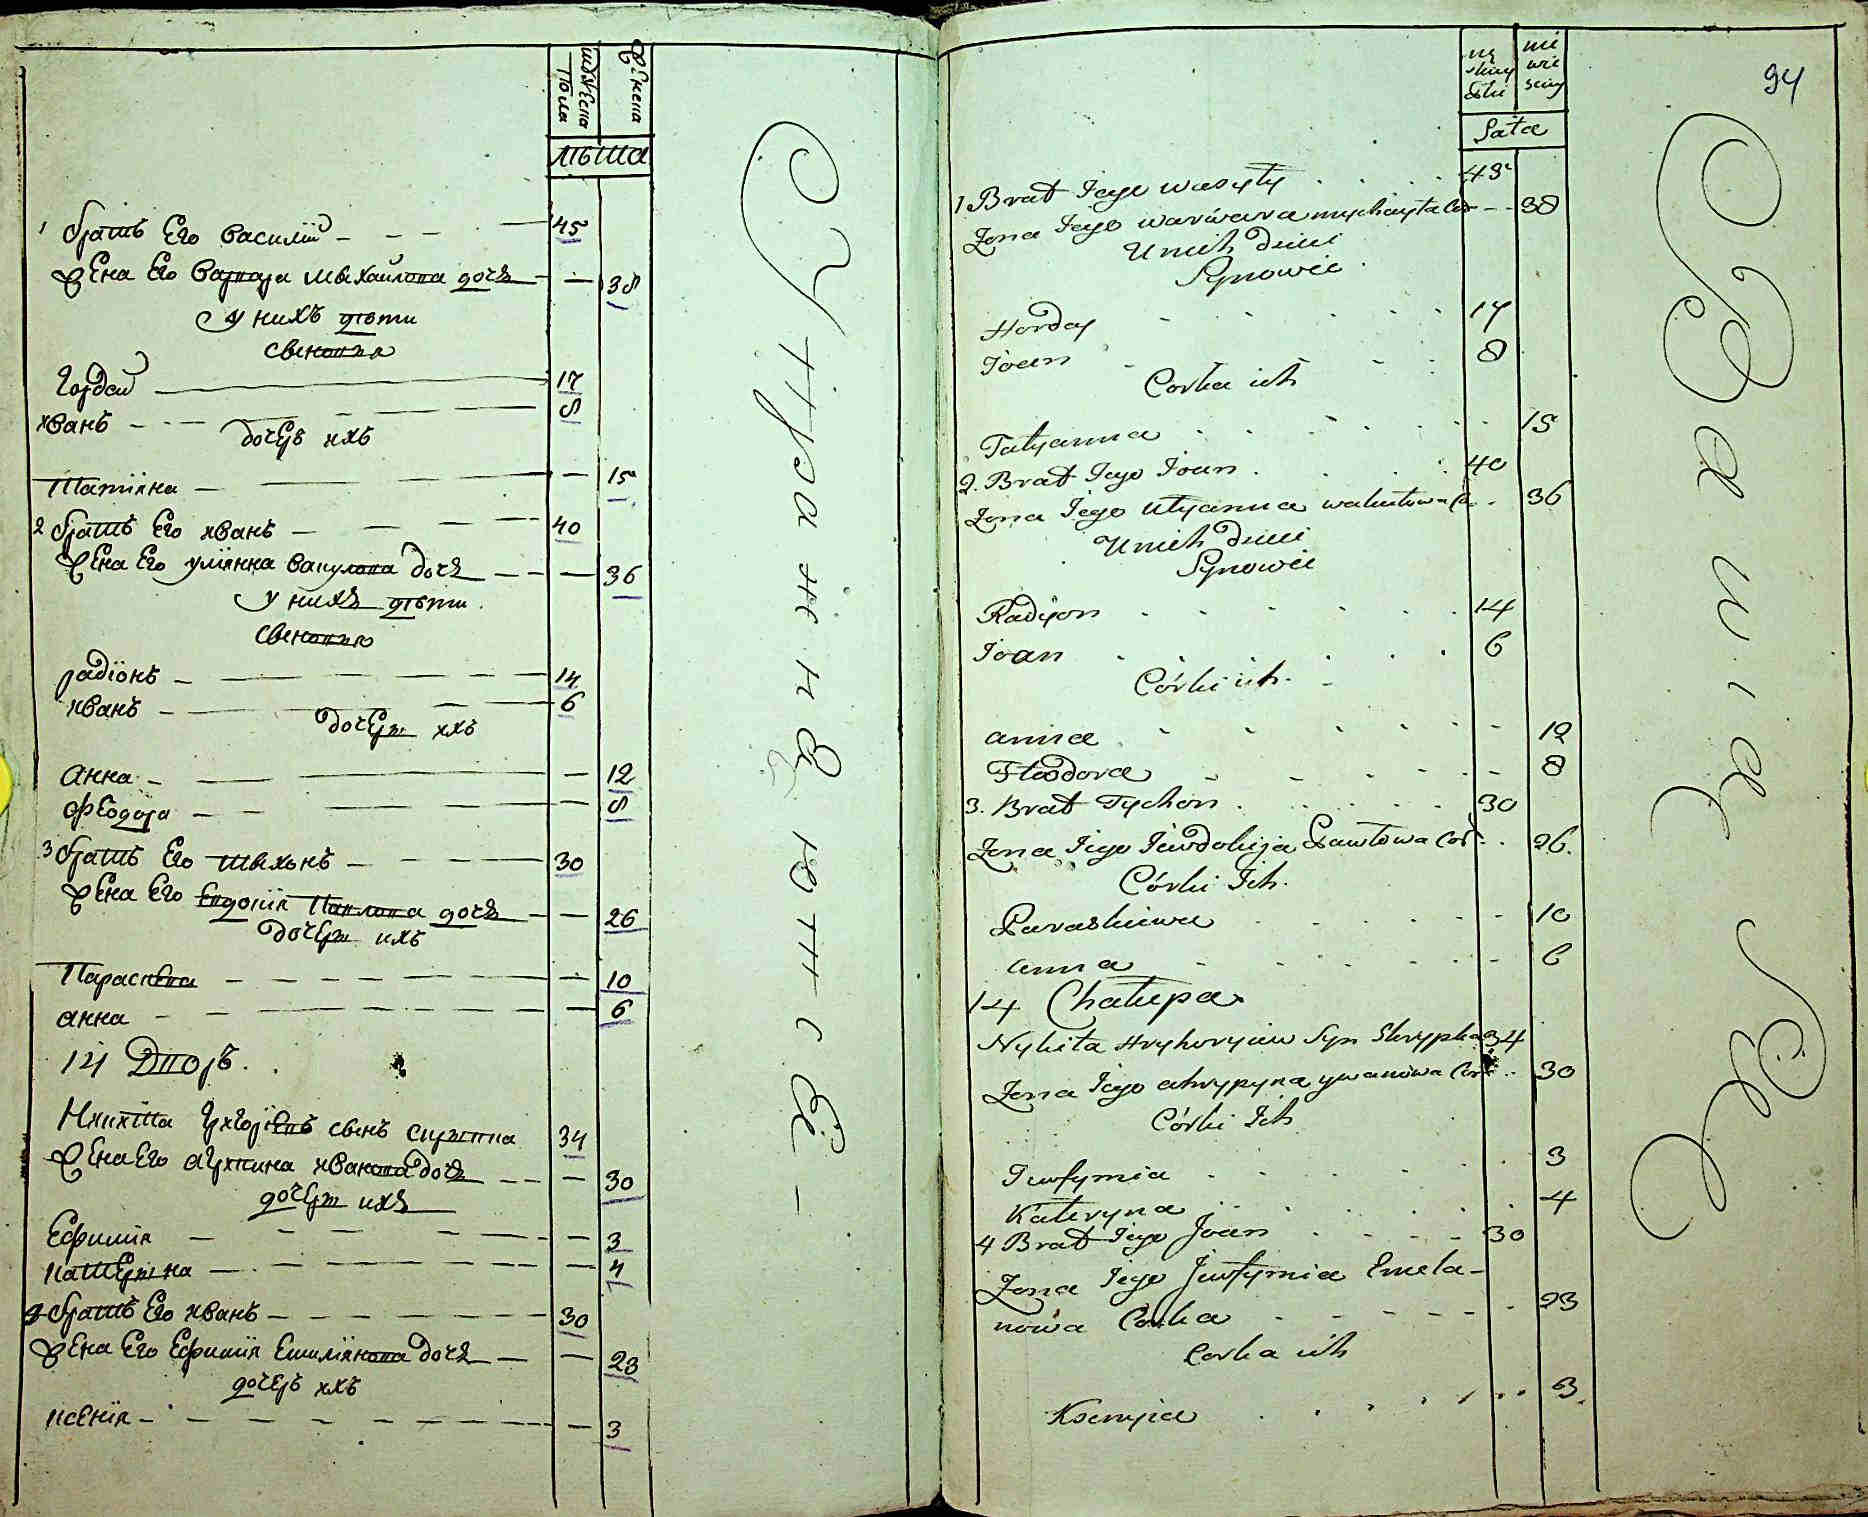 мужеска пола
женска
лѣта
1 братъ Его василїй 45
жена Его варвара михайлова дочь 38
у нихъ дѣти
сыновья
Гордѣй 17
иванъ 8
дочерь ихъ
Татїяна 15
2 братъ Его иванъ 40
жена Его улїянна вакулова дочь 36
у нихъ дѣти
сыновья
радїонъ 14
иванъ 6
дочери ихъ
анна 12
феодора 8
3 братъ Его тихонъ 30
жена Его Евдокїя Павлова дочь 26
дочери ихъ
Параскева 10
анна 6
14 Дворъ
Никита Григорїевъ сынъ скрипка 34
жена Его агрипина иванова дочь 30
дочери ихъ
Ефимїя 3
катерина 4
4 братъ Его иванъ 30
жена Его Ефимїя Емилїянова дочь 23
дочерь ихъ
ксенїя 3
94
Łata
1 Brat Iego wasyły 45
Żona Iego warwara mychayła Cor 38
U nich dzieci
Synowie
Horday 17
Ioan 8
Corka ich
Tatyanna 15
2. Brat Iego Ioan 40
Żona Iego Ulyanna wakułowa Co 36
U nich dzieci
Synowie
Radyon 14
Ioan 6
Córki ich
anna 12
Fteodora 8
3. Brat Tychon 30
Żona Iego Iewdokija Pawłowa Cor 26
Córki Ich
Paraskiewa 10
anna 6
14 Chałupa
Nykita Hryhoryiew Syn Skrypka 34
Żona Iego ahrypyna ywanowa Cor 30
Córki Ich
Iewfymia 3
Kateryna 4
4 Brat Iego Joan 30
Żona Iego Jewfymia Emela-
nowa Córka 23
Corka ich
Ksenyia 3